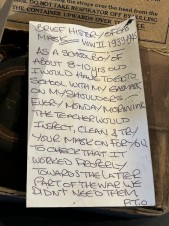 over the head.
DO NOT TAKE RESPIRATOR OFF BY PULLING
THE CONTAINER UPWARDS OVER THE FACE.
BRIEF HISTORY OF GAS
MASK - WWII 1939/45
AS A SCHOOLBOY OF
ABOUT 8-10 YRS OLD
I WOULD HAVE TO GO TO
SCHOOL WITH MY GAS MASK
ON MY SHOULDERS -
EVERY MONDAY MORNING
THE TEACHER WOULD
INSPECT, CLEAN & TRY
YOUR MASK ON FOR YOU
TO CHECK THAT IT
WORKED PROPERLY
TOWARDS THE LATTER
PART OF THE WAR WE
DIDN'T NEED THEM
P.T.O